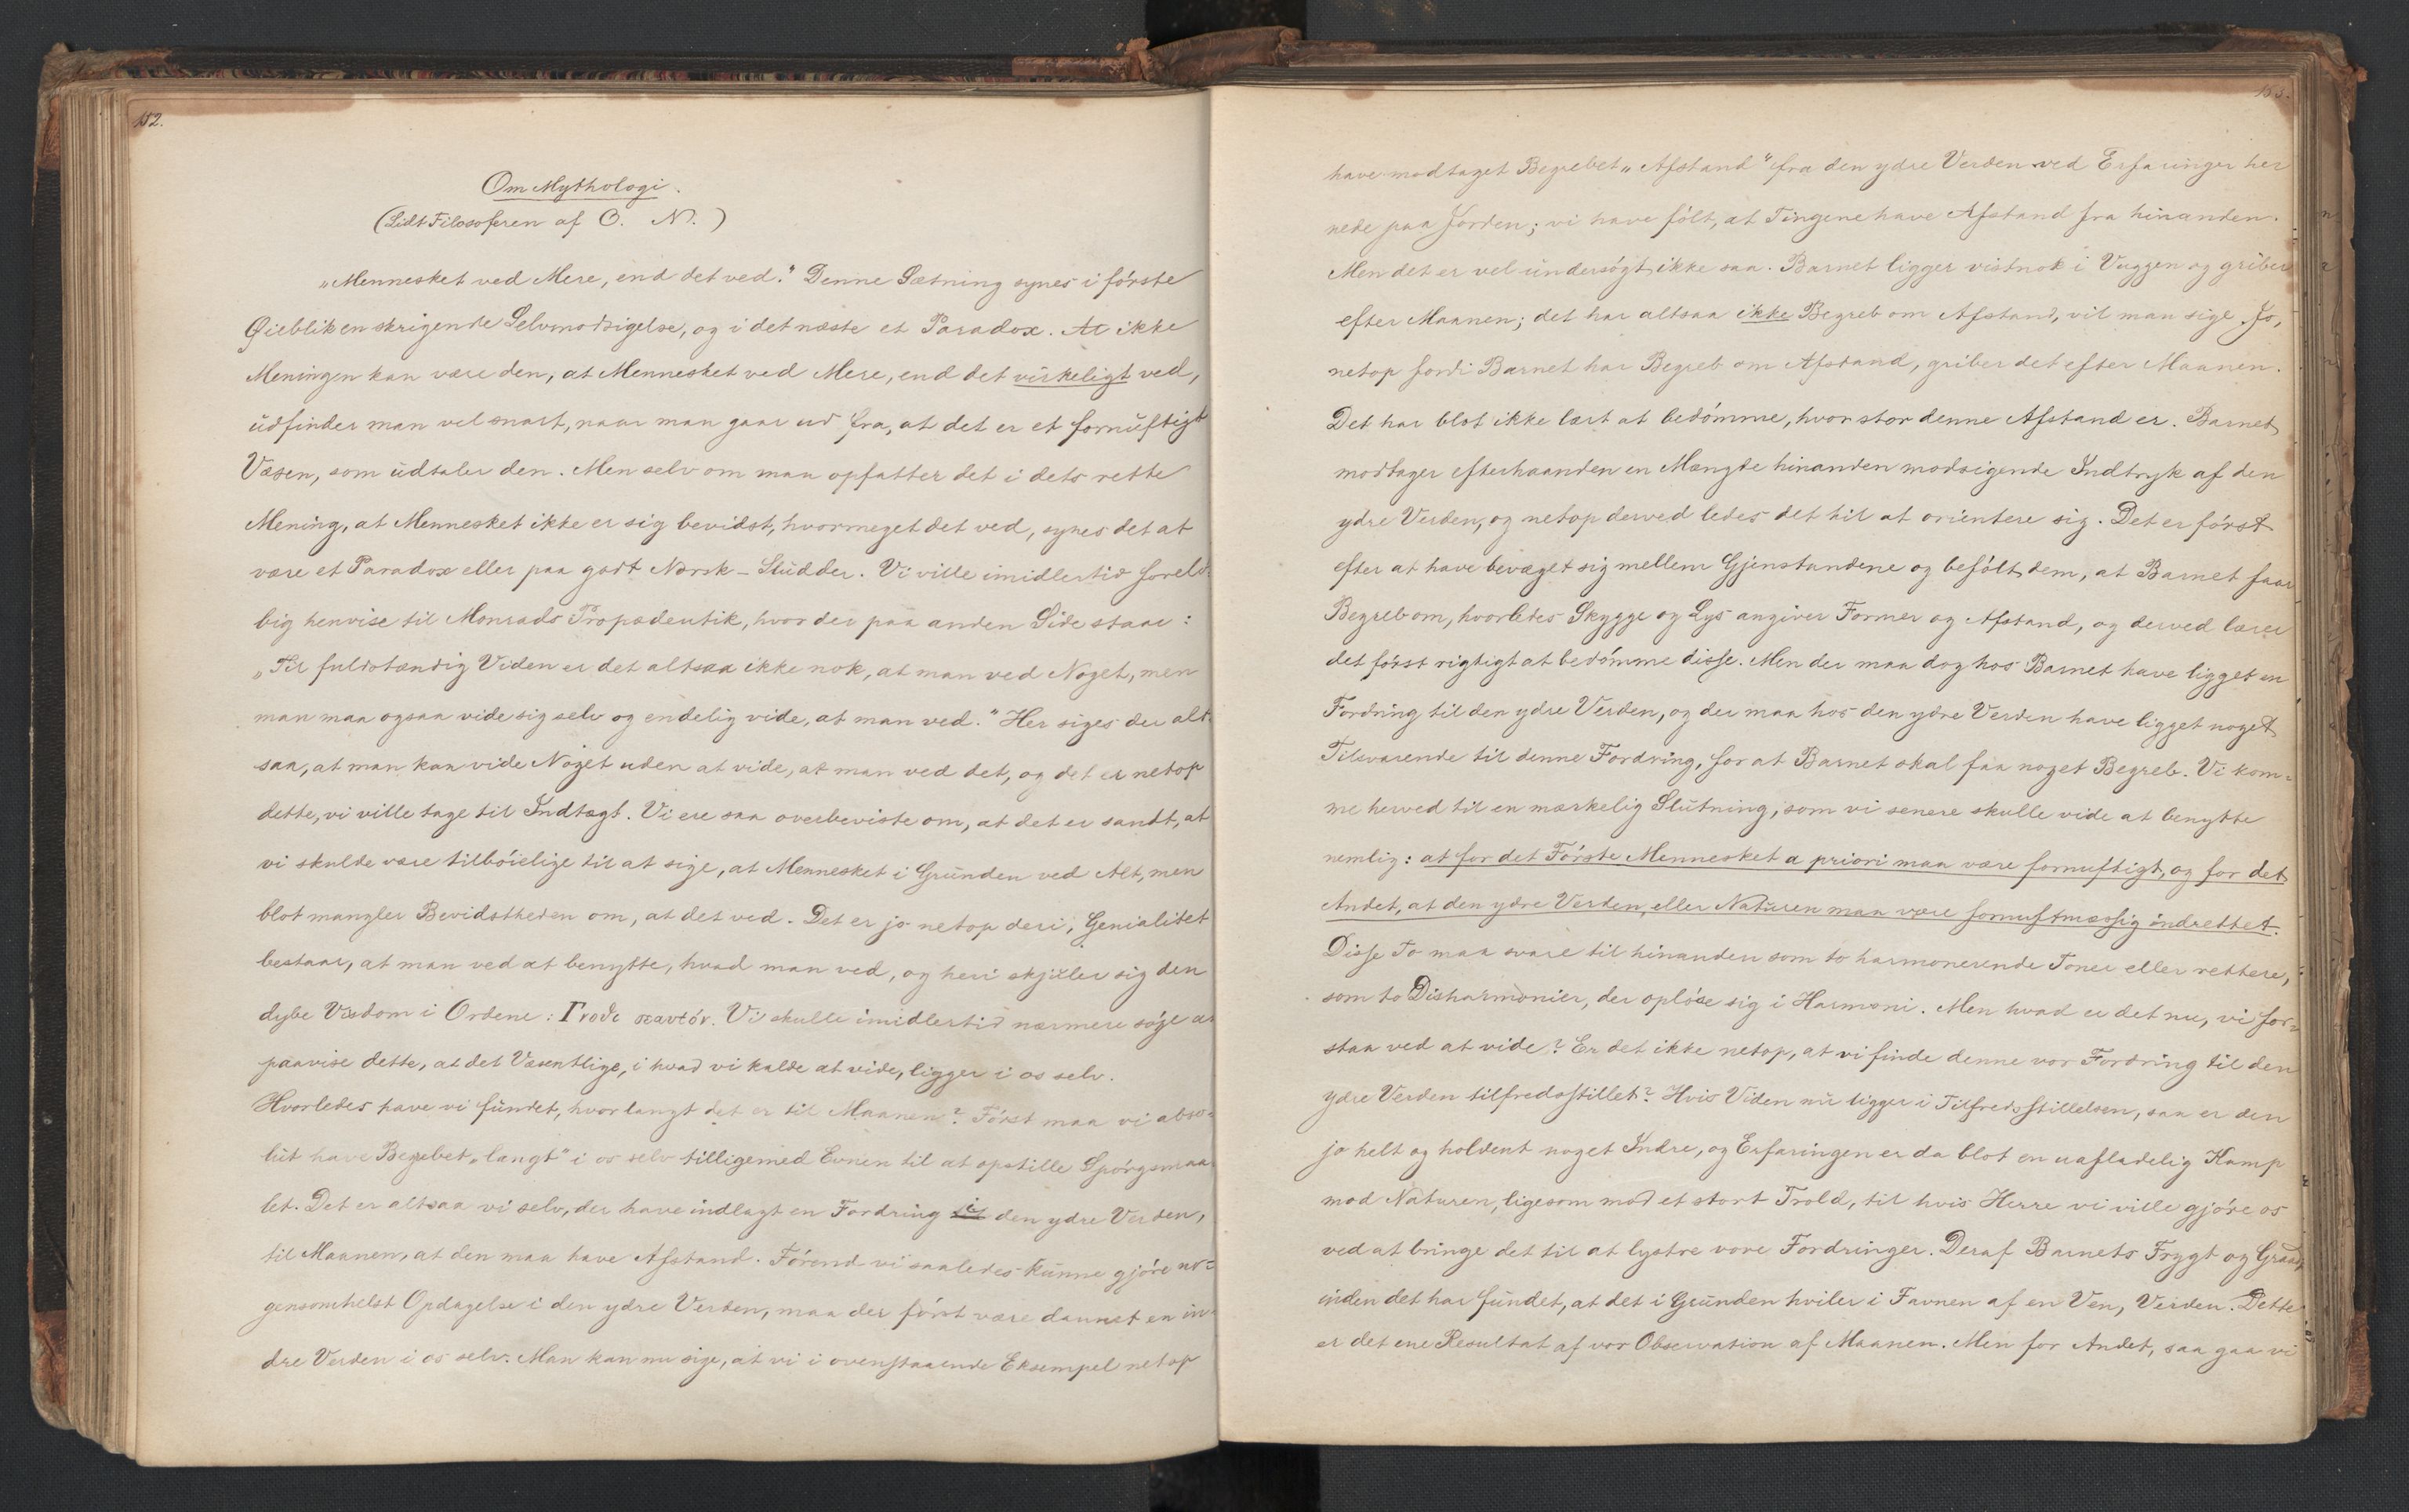 152.
Om Mythologi.
(Lidt Filosoferen af O. N.)
„Mennesket ved Mere, end det ved.“ Denne Sætning synes i første
Øieblik en skrigende Selvmodsigelse, og i det næste et Paradox. At ikke
Meningen kan være den, at Mennesket ved Mere, end det virkeligt ved,
udfinder man vel snart, naar man gaar ud fra, at det er et fornuftigt
Væsen, som udtaler den. Men selv om man opfatter det i dets rette
Mening, at Mennesket ikke er sig bevidst, hvormeget det ved, synes det at
være et Paradox eller paa godt Norsk – Sludder. Vi ville imidlertid forelø-
big henvise til Monrads Propædeutik, hvor der paa anden Side staar:
„Til fuldstændig Viden er det altsaa ikke nok, at man ved Noget, men
man maa ogsaa vide sig selv og endelig vide, at man ved.“ Her siges der alt-
saa, at man kan vide Noget uden at vide, at man ved det, og det er netop
dette, vi ville tage til Indtægt. Vi ere saa overbeviste om, at det er sandt, at
vi skulde være tilbøielige til at sige, at Mennesket i Grunden ved Alt, men
blot mangler Bevidstheden om, at det ved. Det er jo netop deri, Genialitet
bestaar, at man ved at benytte, hvad man ved, og heri skjuler sig den
dybe Visdom i Ordene: Γνοϑι σεαυτόν. Vi skulle imidlertid nærmere søge at
paavise dette, at det Væsentlige, i hvad vi kalde at vide, ligger i os selv.
Hvorledes have vi fundet, hvor langt det er til Maanen? Først maa vi abso-
lut have Begrebet „langt“ i os selv tilligemed Evnen til at opstille Spørgsmaa-
let. Det er altsaa vi selv, der have indlagt en Fordring i den ydre Verden,
til Maanen, at den maa have Afstand. Førend vi saaledes kunne gjøre no-
gensomhelst Opdagelse i den ydre Verden, maa der først være dannet en in-
dre Verden i os selv. Man kan nu sige, at vi i ovenstaaende Eksempel netop
153.
have modtaget Begrebet „Afstand“ fra den ydre Verden ved Erfaringer her
nede paa Jorden; vi have følt, at Tingene have Afstand fra hinanden.
Men det er vel undersøgt ikke saa. Barnet ligger vistnok i Vuggen og griber
efter Maanen; det har altsaa ikke Begreb om Afstand, vil man sige. Jo,
netop fordi Barnet har Begreb om Afstand, griber det efter Maanen.
Det har blot ikke lært at bedømme, hvor stor denne Afstand er. Barnet
modtager efterhaanden en Mængde hinanden modsigende Indtryk af den
ydre Verden, og netop derved ledes det til at orientere sig. Det er først
efter at have bevæget sig mellem Gjenstandene og befølt dem, at Barnet faar
Begreb om, hvorledes Skygge og Lys angiver Former og Afstand, og derved lærer
det først rigtigt at bedømme disse. Men der maa dog hos Barnet have ligget en
Fordring til den ydre Verden, og der maa hos den ydre Verden have ligget noget
Tilsvarende til denne Fordring, for at Barnet skal faa noget Begreb. Vi kom-
me herved til en mærkelig Slutning, som vi senere skulle vide at benytte
nemlig: at for det Første Mennesket a priori maa være fornuftigt, og for det
Andet, at den ydre Verden, eller Naturen maa være fornuftmæssig indrettet.
Disse To maa svare til hinanden som to harmonerende Toner eller rettere,
som to Disharmonier, der opløse sig i Harmoni. Men hvad er det nu, vi for-
staa ved at vide? Er det ikke netop, at vi finde denne vor Fordring til den
ydre Verden tilfredsstillet? Hvis Viden nu ligger i Tilfredsstillelsen, saa er den
jo helt og holdent noget Indre, og Erfaringen er da blot en uafladelig Kamp
mod Naturen, ligesom mod et stort Trold, til hvis Herre vi ville gjøre os
ved at bringe det til at lystre vore Fordringer. Deraf Barnets Frygt og Graad,
inden det har fundet, at det i Grunden hviler i Favnen af en Ven, Verden. Dette
er det ene Resultat af vor Observation af Maanen. Men for Andet, saa gaa vi